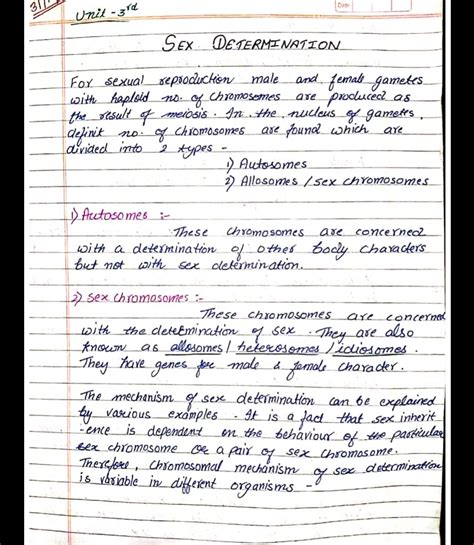 31/1
Date:
Unit - 3rd
SEX DETERMINATION
For sexual reproduction male and female gametes
with haploid no. of chromosomes are produced as
the result of meiosis. In the nucleus of gametes,
definit no. of chromosomes are found which are
divided into 2 types -
1) Autosomes
2) Allosomes / sex chromosomes
1) Autosomes :-
These chromosomes are concerned
with a determination of other body characters
but not with sex determination.
2) Sex chromasomes :-
These chromosomes are concerned
with the determination of sex. They are also
known as allosomes / heterosomes / idiosomes.
They have genes for male & female character.
The mechanism of sex determination can be explained
by various examples. It is a fact that sex inherit
-ence is dependent on the behaviour of the particular
sex chromosome or a pair of sex chromosome.
Therefore, chromosomal mechanism of sex determination
is variable in different organisms -